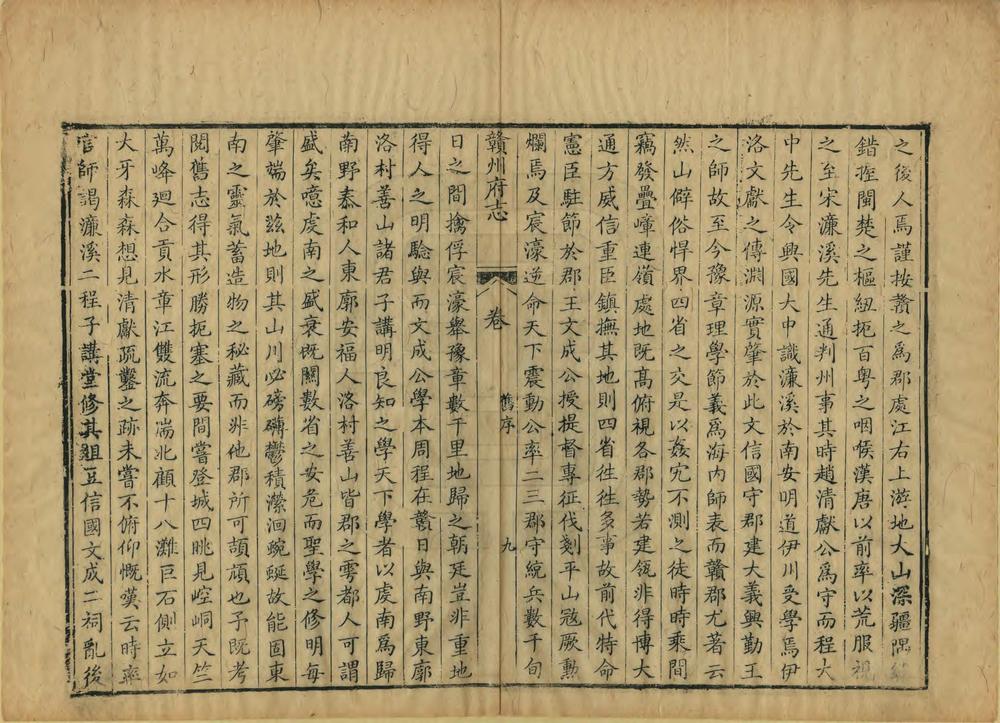 之後人焉謹按贛之爲郡處江右上游地大山深疆隅
錯控閩楚之樞紐扼百粤之咽喉漢唐以前率以荒服視
之至宋濂溪先生通判州事其時趙清獻公爲守而程大
中先生令興國大中識濂溪於南安明道伊川受學焉伊
洛文獻之傳淵源實肇於此文信國守郡建大義興勤王
之師故至今豫章理學節義爲海内師表而贛郡尤著云
然山僻俗悍界四省之交是以姦宄不測之徒時時乘間
竊發疊嶂連嶺處地既高俯視各郡勢若建瓴非得博大
通方威信重臣鎮撫其地則四省徃徃多事故前代特命
憲臣駐節於郡王文成公授提督專征伐剗平山寇厥勳
爛焉及宸濠逆命天下震動公率二三郡守統兵數千旬
贛州府志 卷 舊序 九
日之間擒俘宸濠舉豫章數千里地歸之朝廷豈非重地
得人之明驗與而文成公學本周程在贛日與南野東廓
洛村善山諸君子講明良知之學天下學者以虔南爲歸
南野泰和人東廓安福人洛村善山皆郡之雩都人可謂
盛矣噫虔南之盛衰既關數省之安危而聖學之修明每
肇端於玆地則其山川必磅礴鬱積瀠洄蜿蜒故能固東
南之靈氣蓄造物之秘藏而非他郡所可頡頏也予既考
閱舊志得其形勝扼塞之要間嘗登城四眺見崆峒天竺
萬峰廻合貢水章江雙流奔湍北顧十八灘巨石側立如
犬牙森森想見清獻疏鑿之跡未嘗不俯仰慨嘆云時率
官師謁濂溪二程子講堂修其俎豆信國文成二祠亂後